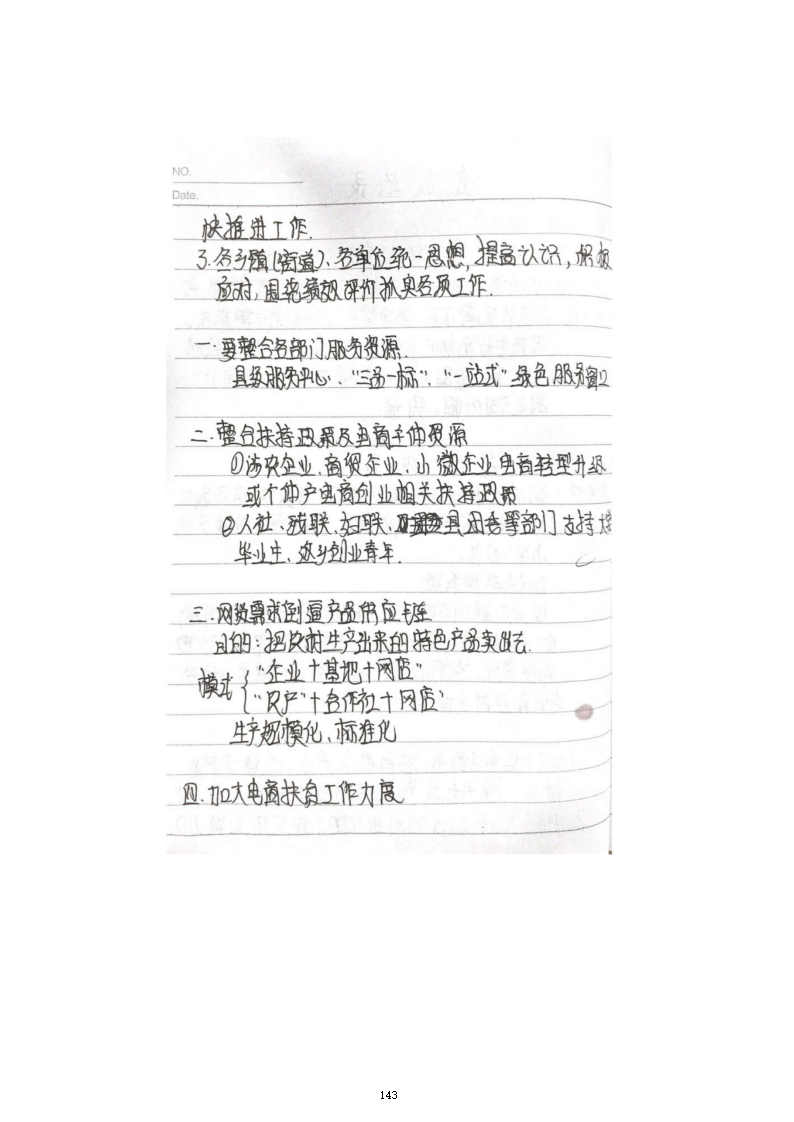 NO.
Date.
快推进工作.
3.各乡镇(街道)、各单位统一思想,提高认识,积极
应对,围绕绩效评价抓实各项工作.
一.要整合各部门服务资源.
县级服务中心、"三品一标"、"一站式"绿色服务窗口
二.整合扶持政策及电商主体资源
①涉农企业、商贸企业、小微企业电商转型升级
或个体户电商创业相关扶持政策
②人社、残联、妇联、县团委等部门支持大学
毕业生、返乡创业青年.
三.网货需求倒逼产品供应链
目的:把农村生产出来的特色产品卖出去.
模式{"企业+基地+网店"
"农户"+合作社+网店"
生产规模化、标准化
四.加大电商扶贫工作力度
143